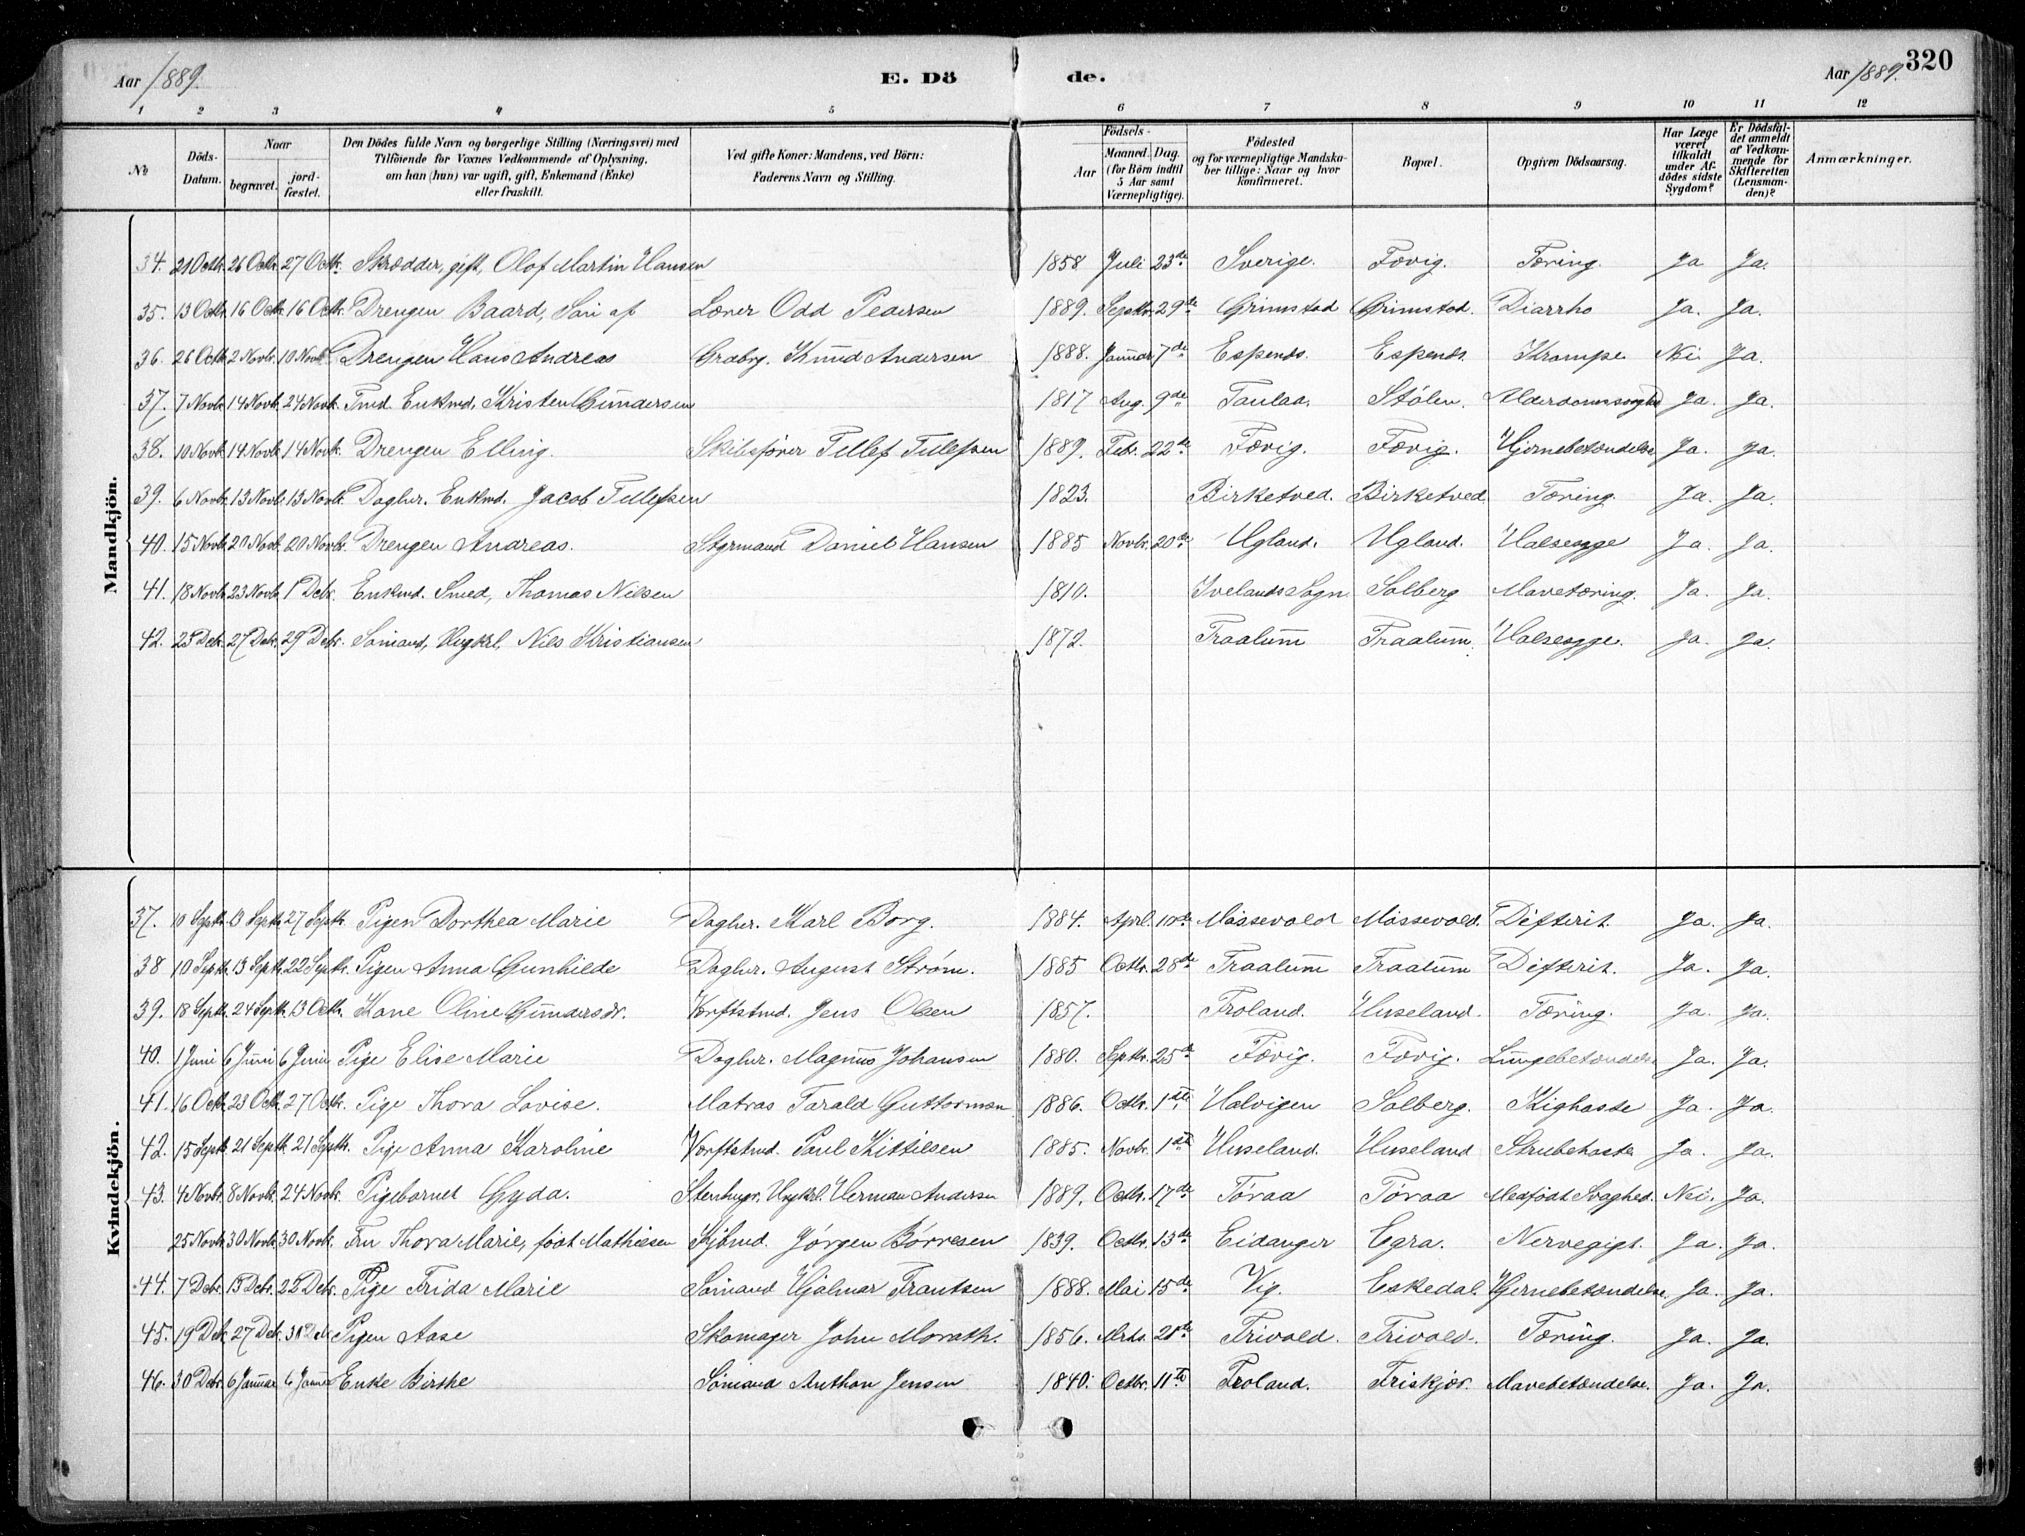 Aar 1889. E. Dö de. Aar 1889. 320
1 2 3 4 5 6 7 8 9 10 11 12
No Döds-Datum. Naar begravet. jord-fæstet. Den Dödes fulde Navn og borgerlige Stilling (Næringsvei) med Tilföiende for Voxnes Vedkommende af Oplysning, om han (hun) var ugift, gift, Enkemand (Enke) eller fraskilt. Ved gifte Koner: Mandens, ved Börn: Faderens Navn og Stilling. Födsels- Aar Maaned. Dag. (for Börn indtil 5 Aar samt Værnepligtige). Födested og for værnepligtige Mandskaber tillige: Naar og hvor konfirmeret. Bopæl. Opgiven Dödsaarsag. Har Læge været tilkaldt under Afdödes sidste Sygdom? Er Dödsfaldet anmeldt af Vedkommende for Skifteretten (Lensmanden)? Anmærkninger.
Mandkjön.
34. 21 Octb. 26 Octb. 27 Octb. Skrædder, gift, Olof Martin Hansen 1858 Juli 23de Sverige. Fævig. Tæring. Ja Ja.
35. 13 Octb. 16 Octb. 16 Octb. Drengen Baard, Søn af Lærer Odd Pedersen 1889. Septbr. 29de Grimstad Grimstad. Diarrho Ja. Ja.
36. 26 Octb. 2 Novb. 10 Novb. Drengen Hans Andreas Grdbrg. Knud Andersen 1888. Januar 7de Espends. Espends. Krampe Nei Ja.
37. 7 Novb. 14 Novb. 24 Novb. Enkmd. Kristen Gundersen 1817 Aug. 9de Taulaa. Stølen. Ja. Ja.
38. 10 Novb. 14 Novb. 14 Novb. Drengen Elling. Skibsfører Tellef Tellefsen 1889. Feb. 22de Fævig. Fævig. Hjernebetændelse Ja. Ja.
39. 6 Novb. 13 Novb. 13 Novb. Daglnr. Enkmd. Jacob Tellefsen 1823. Birketved. Birketved. Tæring. Ja. Ja.
40. 15 Novb. 20 Novb. 20 Novb. Drengen Andreas. Styrmand Daniel Hansen 1885 Novbr. 20de Ugland. Ugland. Halssyge Ja. Ja.
41. 18 Novb. 23 Novb. 1 Debr. Enkmd. Smed, Thomas Nilsen 1810. Ivelands Sogn Solberg Mavetæring. Ja. Ja.
42. 23 Debr. 27 Debr. 29 Debr. Sømand, Ungkrl. Nils Kristiansen 1872. Traalum Traalum. Halssyge. Ja. Ja.
Kvindekjön.
37. 10 Septb. 13 Septb. 27 Septb. Pigen Dorthea Marie Daglnr. Karl Borg. 1884. Aprl. Møssevold Møssevold. Difterit. Ja. Ja.
38 10 Septb. 13 Septb. 22 Septb. Pigen Anna Gunhilde Daglnr. August Strøm. 1885 Octbr. 28de Traalum Traalum Difterit. Ja. Ja.
39. 18 Septb. 24 Septb. 13 Octb. Kone Oline Gundersdr. Værftstmd. Jens Olsen 1857. Froland. Huseland. Tæring. Ja. Ja.
40. 1 Juni 6 Juni 6 Juni Pige Elise Marie Daglnr. Magnus Johansen 1880. Septbr. 25de Fævig. Fævig. Lungebetændelse Ja. Ja.
41. 16 Octb. 23 Octb. 27 Octb. Pige Thora Lovise. Matros Tarald Guttorman 1886. Octbr. 1ste Halvigen Solberg. Kighoste Ja. Ja.
42. 15 Septb. 21 Septb. 21 Septb. Pige Anna Karoline Værftstmd. Paul Kittilsen 1885. Novbr. 1ste Huseland. Huseland Strubehoste Ja. Ja.
43. 4 Novb. 8 Novb. 24 Novb. Pigebarnet Gyda. Stenhugr. Ungkrl. Herman Andersen 1889. Octbr. 17de Tøraa Tøraa Medfødt Svaghed. Nei. Ja.
25 Novb. 30 Novb. 30 Novb. Fru Thora Marie, født Mathiesen Kjbmd. Jørgen Børresen 1839. Octbr. 13de Eidanger Egra. Nervegigt. Ja. Ja.
44. 7 Debr. 13 Debr. 25 Debr. Pige Frida Marie Sømand Hjalmar Frantsen 1888. Mai 15de Vig. Eskedal. Hjernebetændelse. Ja. Ja.
45. 19 Deb. 27 Deb. Pigen Aase Skomager John Morath. 1856. Mrds. 28de Trivold. Trivold. Tæring. Ja. Ja.
46. 30 Debr. 6 Januar 6 Januar Enke Birthe Sømand Anthon Jensen 1840. Octbr. 11te Froland. Friskjær. Mavebetændelse. Ja. Ja.